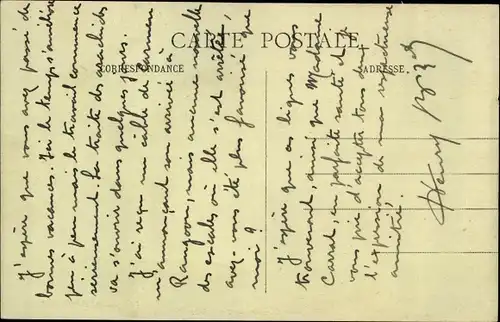 CARTE POSTALE
CORRESPONDANCE
ADRESSE.
J'espère que vous avez passé de
bonnes vacances. Ici le temps s'améliore
peu à peu mais le travail commence
sérieusement. La traite des arachides
va s'ouvrir dans quelques jours.
J'ai reçu un câble de Carmen
m'annonçant son arrivée à
Rangoon, mais aucune nouvelle
des escales où elle s'est arrêtée,
avez-vous été plus favorisé que
moi ?
J'espère que ces lignes vous
trouveront, ainsi que Madame
Carral, en parfaite santé et
vous prie d'accepter tous deux
l'expression de ma respectueuse
amitié,
Henry